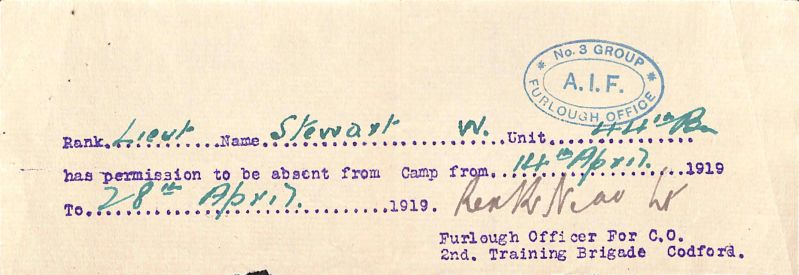 * No. 3 GROUP *
A.I.F.
FURLOUGH OFFICE
Rank.Lieut.........Name.Stewart W. Unit....44th Bn
has permission to be absent from Camp from...14th April.....1919
To..28th April..........1919. Lt
Furlough Officer For C.O.
2nd. Training Brigade Codford.